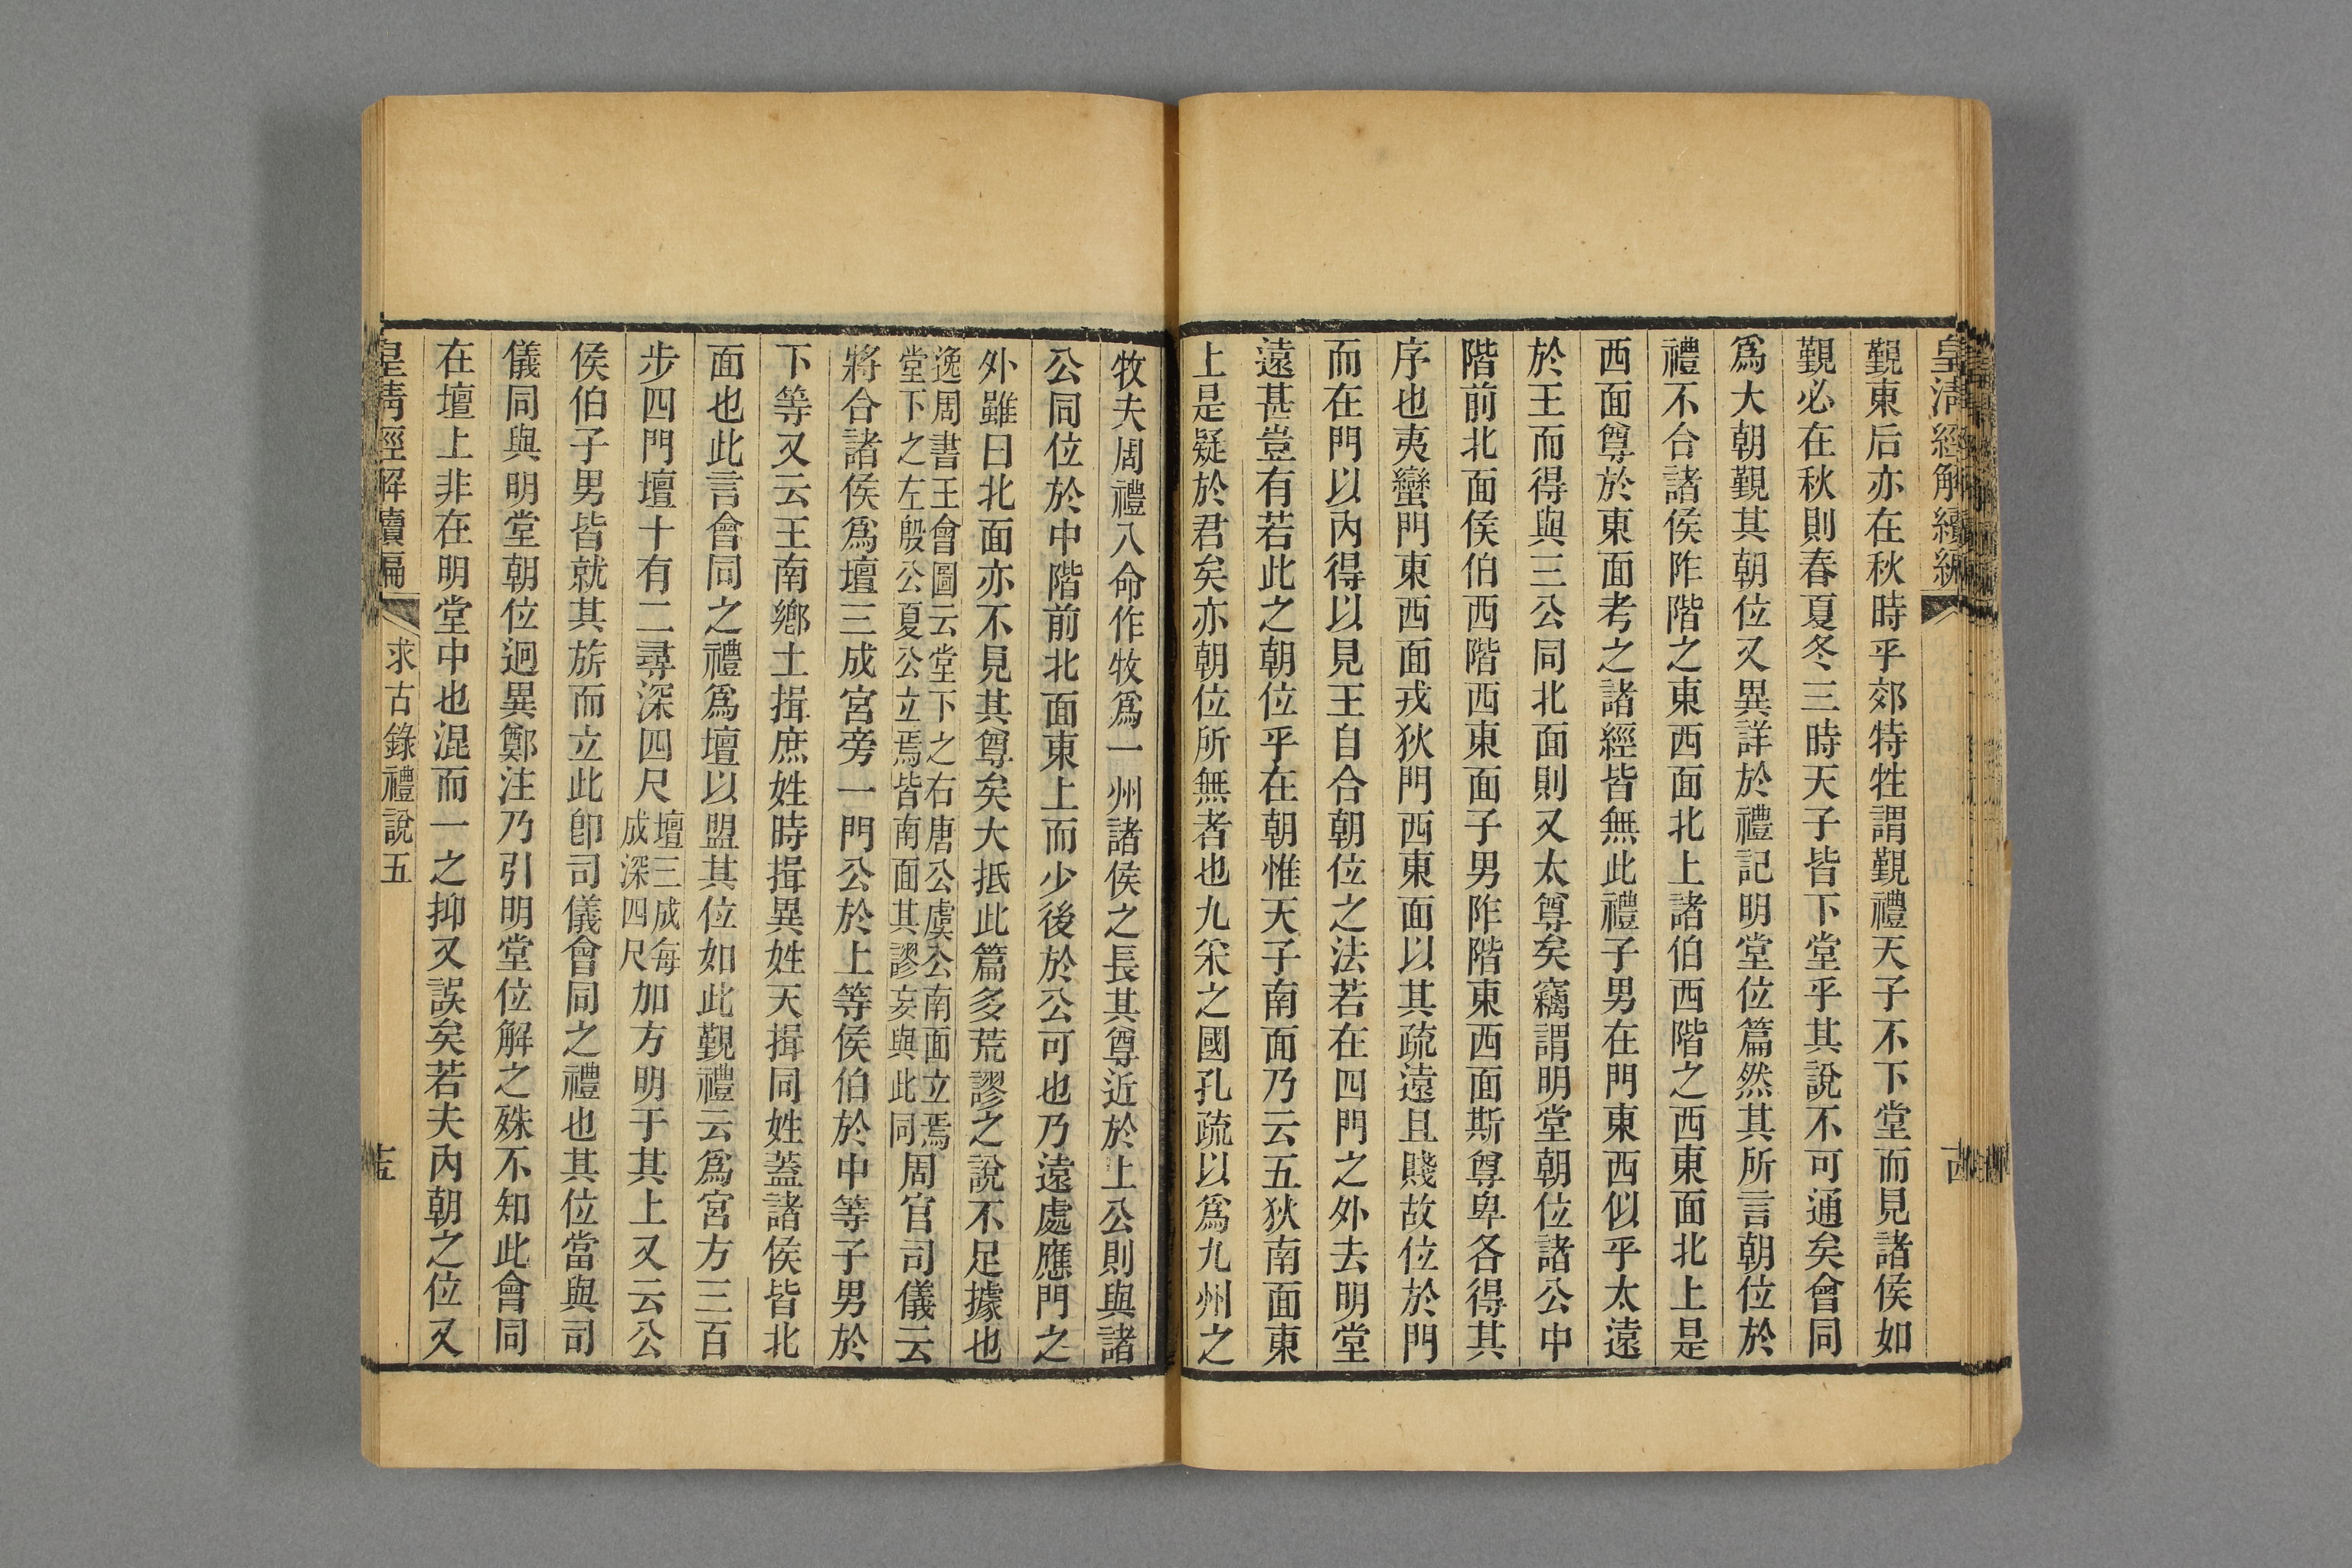 皇清經解續編
古
覲東后亦在秋時乎郊特牲謂覲禮天子不下堂而見諸侯如
覲必在秋則春夏冬三時天子皆下堂乎其說不可通矣會同
爲大朝覲其朝位又異詳於禮記明堂位篇然其所言朝位於
禮不合諸侯阼階之東西面北上諸伯西階之西東面北上是
西面尊於東面考之諸經皆無此禮子男在門東西似乎太遠
於王而得與三公同北面則又太尊矣竊謂明堂朝位諸公中
階前北面侯伯西階西東面子男阼階東西面斯尊卑各得其
序也夷蠻門東西面戎狄門西東面以其疏遠且賤故位於門
而在門以內得以見王自合朝位之法若在四門之外去明堂
遠甚豈有若此之朝位乎在朝惟天子南面乃云五狄南面東
上是疑於君矣亦朝位所無者也九采之國孔疏以爲九州之
牧夫周禮八命作牧爲一州諸侯之長其尊近於上公則與諸
公同位於中階前北面東上而少後於公可也乃遠處應門之
外雖曰北面亦不見其尊矣大抵此篇多荒謬之說不足據也
逸周書王會圖云堂下之右唐公虞公南面立焉
堂下之左殷公夏公立焉皆南面其謬妄與此同
周官司儀云
將合諸侯爲壇三成宮旁一門公於上等侯伯於中等子男於
下等又云王南鄉土揖庶姓時揖異姓天揖同姓蓋諸侯皆北
面也此言會同之禮爲壇以盟其位如此覲禮云爲宮方三百
步四門壇十有二尋深四尺
壇三成每
成深四尺
加方明于其上又云公
侯伯子男皆就其旂而立此卽司儀會同之禮也其位當與司
儀同與明堂朝位迥異鄭注乃引明堂位解之殊不知此會同
在壇上非在明堂中也混而一之抑又誤矣若夫內朝之位又
皇清經解續編
求古錄禮說五